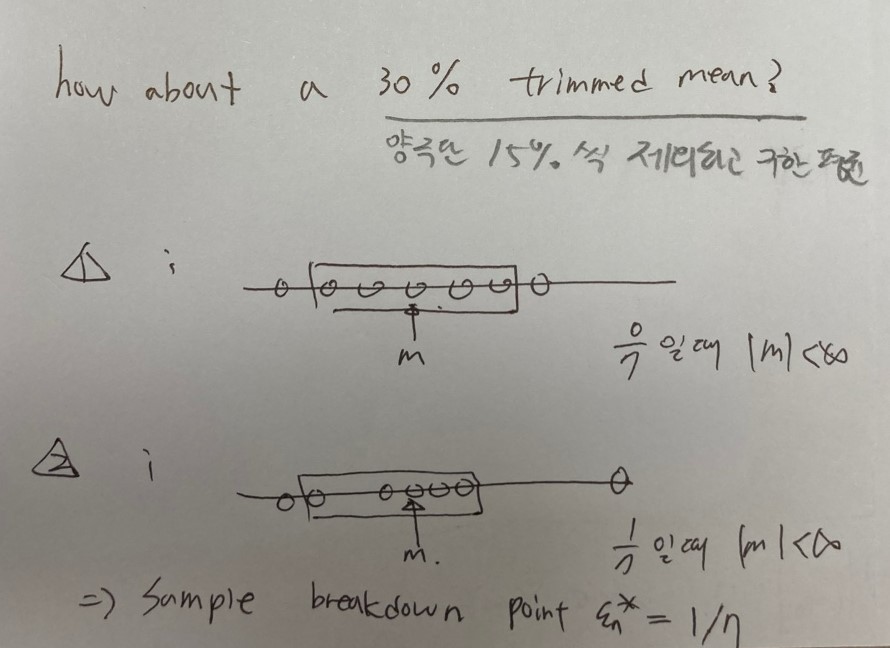 how about a 30% trimmed mean?
양극단 15% 씩 제외되고 구한 평균
△1 ;
m
0/7 일 때 |m| < ∞
△2 ;
m.
1/7 일 때 |m| < ∞
=> Sample breakdown point ε*n = 1/7